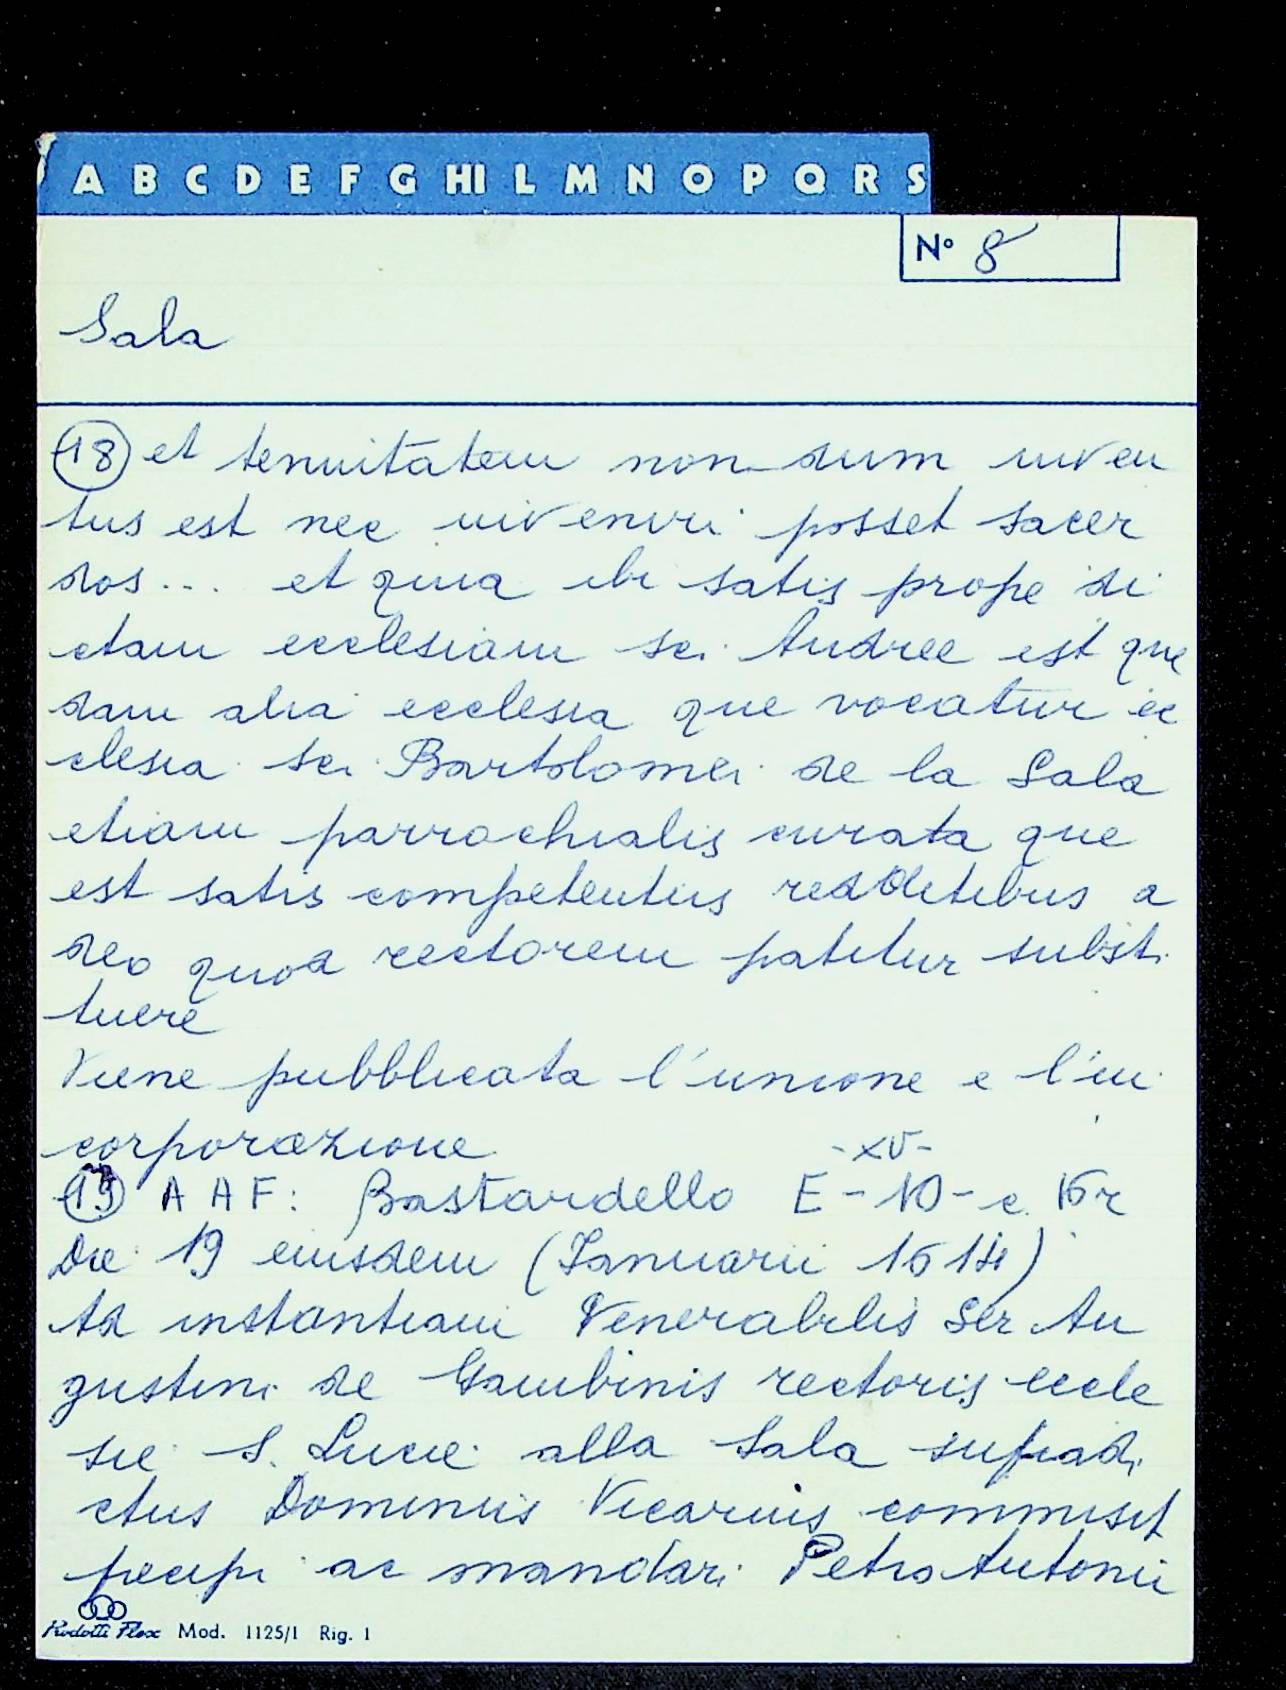 A B C D E F G HI L M N O P Q R S
N° 8
Sala
18 et tenuitatem non dum inven
tus est nec inveniri posset sacer
dos... et quia ibi satis prope di
ctam ecclesiam sci Andree est que
dam alia ecclesia que vocatur ec
clesia sci Bartolomei de la Sala
etiam parrochialis curata que
est satis competentius redditibus a
deo quod rectorem patitur substi
tuere
Viene pubblicata l'unione e l'in
corporazione
-XV-
19 A A F: Bastardello E-10-c. 16r
Die 19 eiusdem (Ianuarii 1514)
Ad instantiam Venerabilis Ser Au
gustini de Gambinis rectoris eccle
sie S. Lucie alla Sala supradi
ctus Dominus Vicarius commisit
precipi ac mandari Petro Antonii
Rudotti Flex Mod. 1125/1 Rig. 1